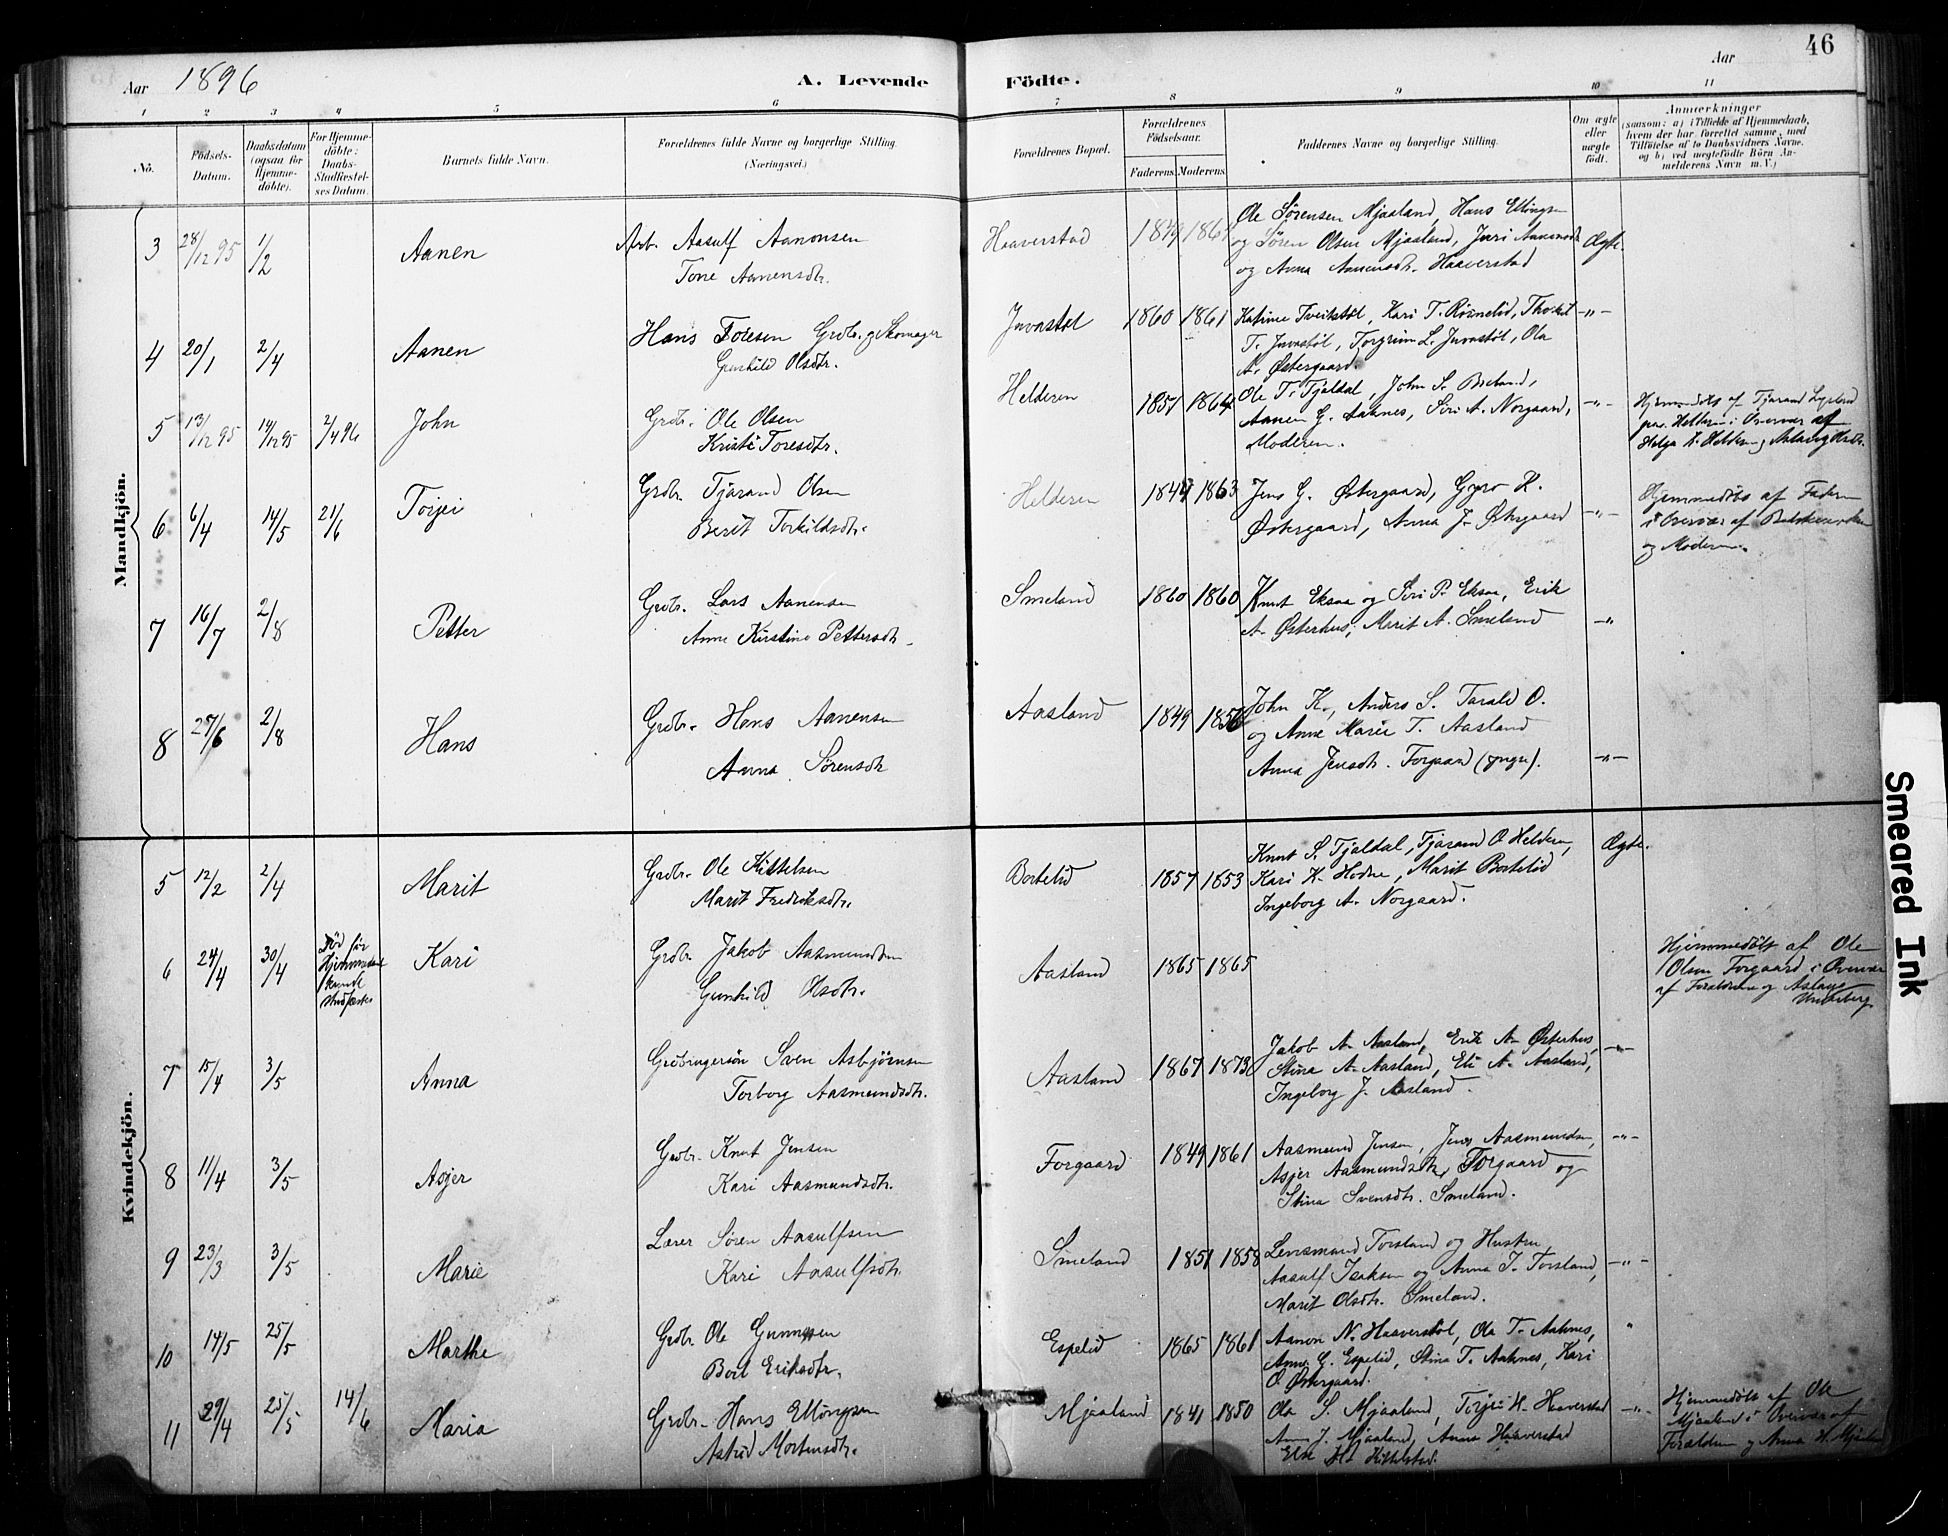 46
Aar 1896 A. Levende Födte. Aar
1 2 3 4 5 6 7 8 9 10 11
No. Födsels-Datum. Daabsdatum (ogsaa for Hjemmedöbte). For Hjemmedöbte: Daabs-Stadfæstelses Datum. Barnets fulde Navn. Forældrenes fulde Navne og borgerlige Stilling. (Næringsvei.) Forældrenes Bopæl. Forældrenes Födselsaar. Faderens Moderens Faddernes Navne og borgerlig Stilling. Om ægte eller uægte födt. Anmærkninger (saasom: a) i Tilfælde af Hjemmedaab, hvem der har forrettet samme, med Tilföielse af to Daabsvidners Navne, og b) ved uægtefödte Börn Anmelderens Navn m. V.)
Mandkjön.
3 28/12 95 1/2 Aanen Arb. Aasulf Aanonsen Haaverstad 1849 Ole Sørensen Mjaaland, Hans Ellingsen
Tone Aanensdtr. og Søren Olsen Mjaaland, Juri Aanensdtr. Ægte.
og Anna Aanensdtr. Haaverstad
4 20/1 2/4 Aanen Hans Toresen Grdbr. og Skomager Juvastøl 1860 1861 Katrine Tveitstøl, Kari T. Røsnelid, Thorkil -"-
Gunhild Olsdtr. T. Juvastøl, Torgrim L. Juvastøl, Ola
A. Østergaard.
5 13/12 95 14/12 95 2/4 96 John Grdbr. Ole Olsen Helderen 1857 1864 Ole T. Tjaldal, John S. Bieland, -"- Hjemmedøbt af Tjarand Lygelid
Kristi Toresdtr. Aanen G. Aaknes, Siri A. Norgaard, paa Helderen i Overvær af
Moderen. Helga K. Helderen og Aslaug
6 6/4 14/5 21/6 Torjei Grdbr. Tjarand Olsen Helderen 1847 1863 Jens G. Østergaard, Gyro K. -"- Hjemmedøbt af Faderen
Berit Torkildsdtr. Østergaard, Anna J. Østergaard i Overvær af
og Moderen.
7 16/7 2/8 Petter Grdbr. Lars Aanensen Smeland 1860 1860 Knut Eksaa og Siri P. Eksaa, Erik
Anne Kirstine Pettersdtr. A. Østerhus, Marit A. Smeland -"-
8 27/6 2/8 Hans Grdbr. Hans Aanensen Aasland 1849 1856 John K., Anders S. Tarald O.
Anna Sørensdtr og Anne Marie T. Aasland
Anna Jensdtr. Forgaard (yngre). -"-
Kvindekjön.
5 12/2 2/4 Marit Grdbr. Ole Kittelsen Bortelid 1857 1853 Knut S. Tjaldal, Tjarand O Helderen, Ægte.
Marit Fredriksdtr. Kari K. Hodne, Marit Bortelid
Ingeborg A. Norgaard.
6 24/4 30/4 Død før Hjemmedaab kunde stadfæstes Kari Grdbr. Jakob Aasmundsen Aasland 1865 1865 Hjemmedøbt af Ole
Gunhild Olsdtr. Olsen Forgaard i Overvær
af Forældrene og Aslaug
7 15/4 3/5 Anna Grdbrugersøn Sven Asbjørnsen Aasland 1867 1873 Jakob A. Aasland, Erik A. Østerhus, -"-
Torborg Aasmundsdtr. Stina A. Aasland, Eli A. Aasland,
Ingeborg J. Aasland
8 11/4 3/5 Asjer Grdbr. Knut Jensen Forgaard 1849 1861 Aasmund Jensen, Jens Aasmundsen, -"-
Kari Aasmundsdtr. Asjer Aasmundsdtr, Forgaard og
Stina Svensdtr. Smeland.
9 23/3 3/5 Marie Lærer Søren Aasulfsen Smeland 1851 1858 Lensmand Torsland og Hustru
Kari Aasulfsdtr. Aasulf Isaksen og Anna I. Torsland, -"-
Marit Olsdtr. Smeland.
10 14/5 25/5 Marthe Grdbr. Ole Gunnysen Espelid 1865 1861 Aanon N. Haaverstøl, Ola T. Aaknes, "
Boel Eriksdtr. Anne G. Espelid, Stina T. Aaknes, Kari
O Østergaard.
11 29/4 25/5 14/6 Maria Grdbr. Hans Ellingsen Mjaaland 1841 1850 Ola S. Mjaaland, Torjei K. Haaverstad -"- Hjemmedøbt af Ole
Astrid Mortensdtr. Anne J. Mjaaland, Anna Haaverstad Mjaaland i Overvær af
Else Kittelstad. Forældrene og Anna H. Mjaaland
Smeared Ink